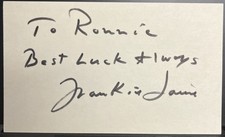 To Ronnie
Best Luck Always
Frankie Laine